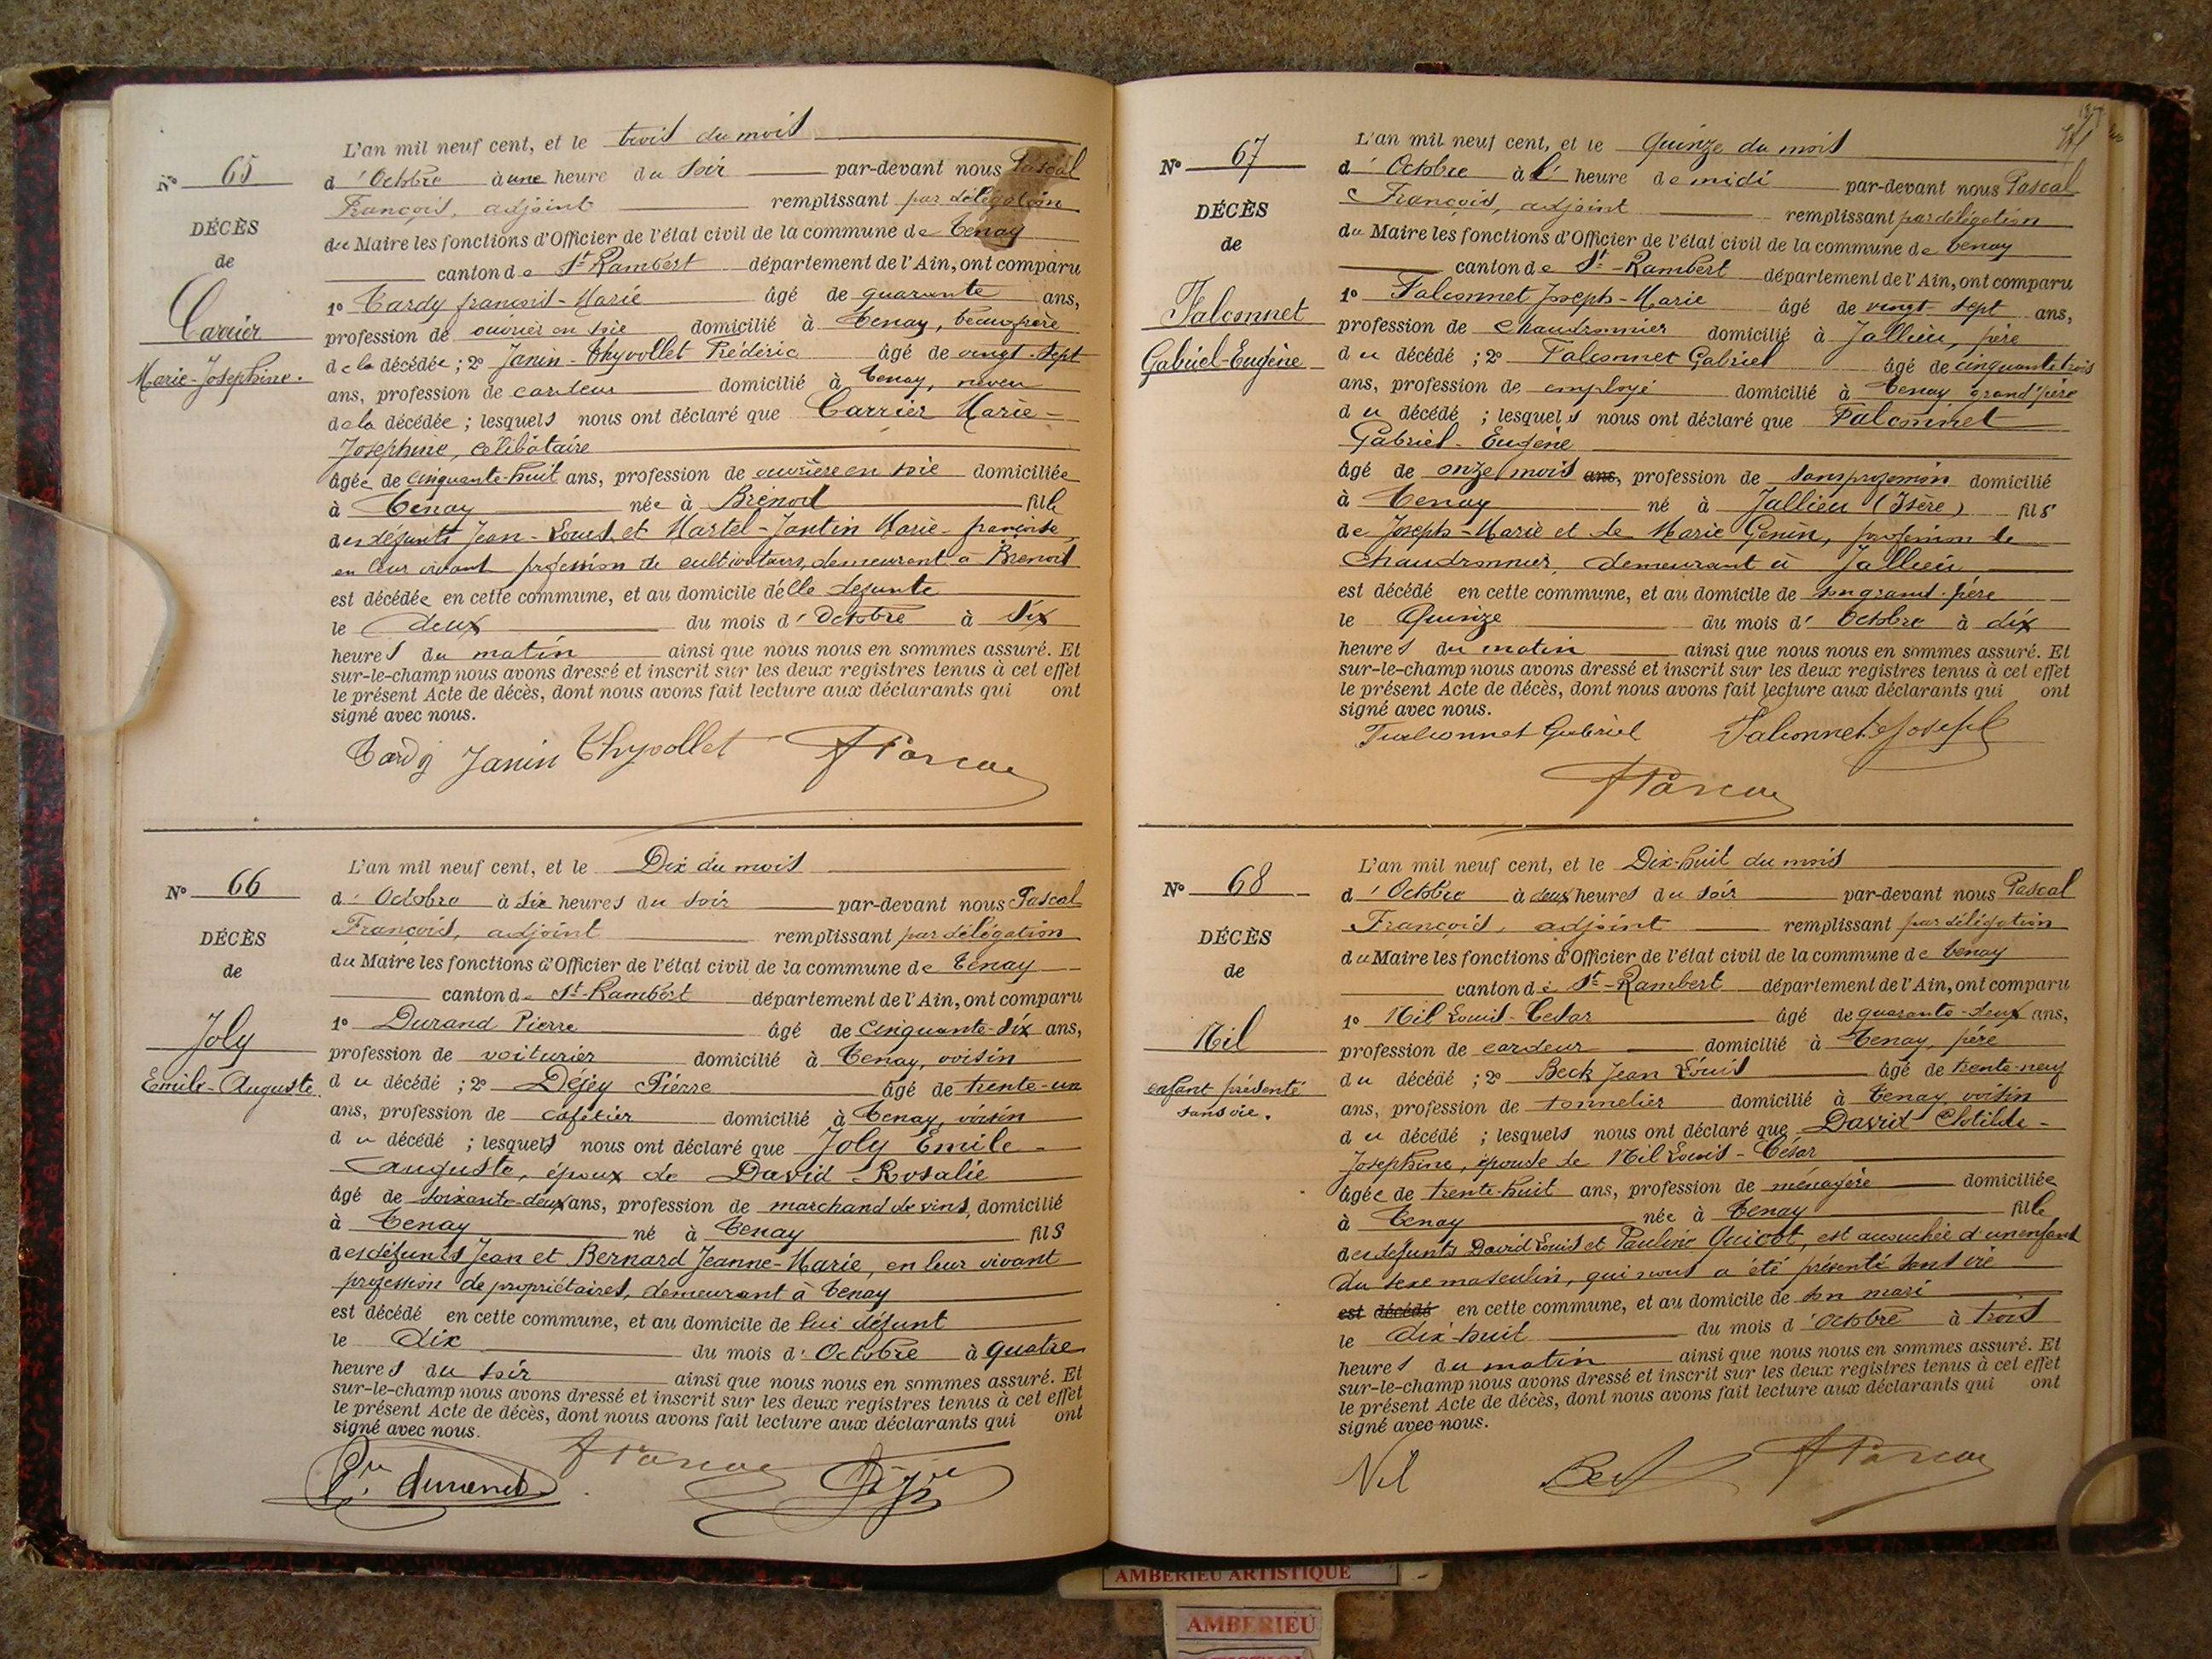 N° 65
DÉCÈS
de
Carrier
Marie-Josephine.
L'an mil neuf cent, et le trois du mois
d'Octobre à une heure du soir par-devant nous Pascal
François, adjoint remplissant par délégation
du Maire les fonctions d'Officier de l'état civil de la commune de Tenay
canton de St Rambert département de l'Ain, ont comparu
1° Tardy françois-Marie âgé de quarante ans,
profession de ouvrier en soie domicilié à Tenay, beau-frère
de la décédée ; 2° Janin-Thyvollet Frédéric âgé de vingt-sept
ans, profession de cardeur domicilié à Tenay, neveu
de la décédée ; lesquels nous ont déclaré que Carrier Marie-
Josephine, célibataire
âgée de cinquante-huit ans, profession de ouvrière en soie domiciliée
à Tenay née à Brénod fille
des défunts Jean-Louis et Martel-Jantin Marie-françoise,
en leur vivant profession de cultivateurs, demeurant à Brenod
est décédée en cette commune, et au domicile d'elle defunte
le deux du mois d'Octobre à six
heures du matin ainsi que nous nous en sommes assuré. Et
sur-le-champ nous avons dressé et inscrit sur les deux registres tenus à cet effet
le présent Acte de décès, dont nous avons fait lecture aux déclarants qui ont
signé avec nous.
Tardy Janin Thyvollet F Pascal
N° 66
DÉCÈS
de
Joly
Emile-Auguste.
L'an mil neuf cent, et le Dix du mois
d'Octobre à six heures du soir par-devant nous Pascal
François, adjoint remplissant par délégation
du Maire les fonctions d'Officier de l'état civil de la commune de Tenay
canton de St-Rambert département de l'Ain, ont comparu
1° Durand Pierre âgé de cinquante-six ans,
profession de voiturier domicilié à Tenay, voisin
du décédé ; 2° Déjey Pierre âgé de trente-un
ans, profession de cafetier domicilié à Tenay, voisin
du décédé ; lesquels nous ont déclaré que Joly Emile-
Auguste, époux de David Rosalie
âgé de soixante-deux ans, profession de marchand de vins, domicilié
à Tenay né à Tenay fils
des défunts Jean et Bernard Jeanne-Marie, en leur vivant
profession de propriétaires, demeurant à Tenay
est décédé en cette commune, et au domicile de lui défunt
le dix du mois d'Octobre à quatre
heures du soir ainsi que nous nous en sommes assuré. Et
sur-le-champ nous avons dressé et inscrit sur les deux registres tenus à cet effet
le présent Acte de décès, dont nous avons fait lecture aux déclarants qui ont
signé avec nous.
Pre durand F Pascal
N° 67
DÉCÈS
de
Falconnet
Gabriel-Eugène
L'an mil neuf cent, et le Quinze du mois
d'Octobre à l' heure de midi par-devant nous Pascal
François, adjoint remplissant par délégation
du Maire les fonctions d'Officier de l'état civil de la commune de Tenay
canton de St-Rambert département de l'Ain, ont comparu
1° Falconnet Joseph-Marie âgé de vingt-sept ans,
profession de Chaudronnier domicilié à Jallieu, père
du décédé ; 2° Falconnet Gabriel âgé de cinquante trois
ans, profession de employé domicilié à Tenay grand'père
du décédé ; lesquels nous ont déclaré que Falconnet
Gabriel-Eugène
âgé de onze mois ans, profession de sans profession domicilié
à Tenay né à Jallieu (Isère) fils
de Joseph-Marie et de Marie Genin, profession de
Chaudronnier, demeurant à Jallieu
est décédé en cette commune, et au domicile de son grand-père
le Quinze du mois d'Octobre à dix
heures du matin ainsi que nous nous en sommes assuré. Et
sur-le-champ nous avons dressé et inscrit sur les deux registres tenus à cet effet
le présent Acte de décès, dont nous avons fait lecture aux déclarants qui ont
signé avec nous.
Falconnet Gabriel Falconnet Joseph
F Pascal
N° 68
DÉCÈS
de
Nil
enfant présenté
sans vie.
L'an mil neuf cent, et le Dix-huit du mois
d'Octobre à deux heures du soir par-devant nous Pascal
François, adjoint remplissant par délégation
du Maire les fonctions d'Officier de l'état civil de la commune de Tenay
canton de St-Rambert département de l'Ain, ont comparu
1° Nil Louis-Cesar âgé de quarante-deux ans,
profession de cardeur domicilié à Tenay, père
du décédé ; 2° Beck Jean Louis âgé de trente-neuf
ans, profession de tonnelier domicilié à Tenay, voisin
du décédé ; lesquels nous ont déclaré que David Clotilde-
Josephine, épouse de Nil Louis-César
âgée de trente-huit ans, profession de ménagère domiciliée
à Tenay née à Tenay fille
des défunts David Louis et Pauline Quicot, est accouchée d'un enfant
du sexe masculin, qui nous a été présenté sans vie
est décédé en cette commune, et au domicile de son mari
le dix-huit du mois d'Octobre à trois
heures du matin ainsi que nous nous en sommes assuré. Et
sur-le-champ nous avons dressé et inscrit sur les deux registres tenus à cet effet
le présent Acte de décès, dont nous avons fait lecture aux déclarants qui ont
signé avec nous.
Nil Beck F Pascal
AMBERIEU ARTISTIQUE
AMBERIEU